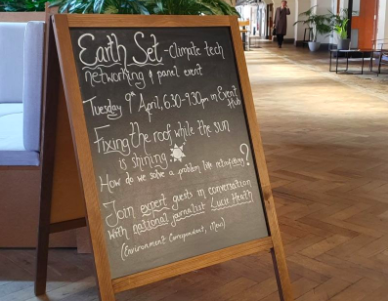 Earth Set - Climate tech
networking & panel event
Tuesday 9th April, 6.30-9.30pm in Event
Hub
Fixing the roof while the sun
is shining
How do we solve a problem like ?
Join expert guests in conversation
with national journalist Lucie Heath
(Environment Correspondent, iNews)